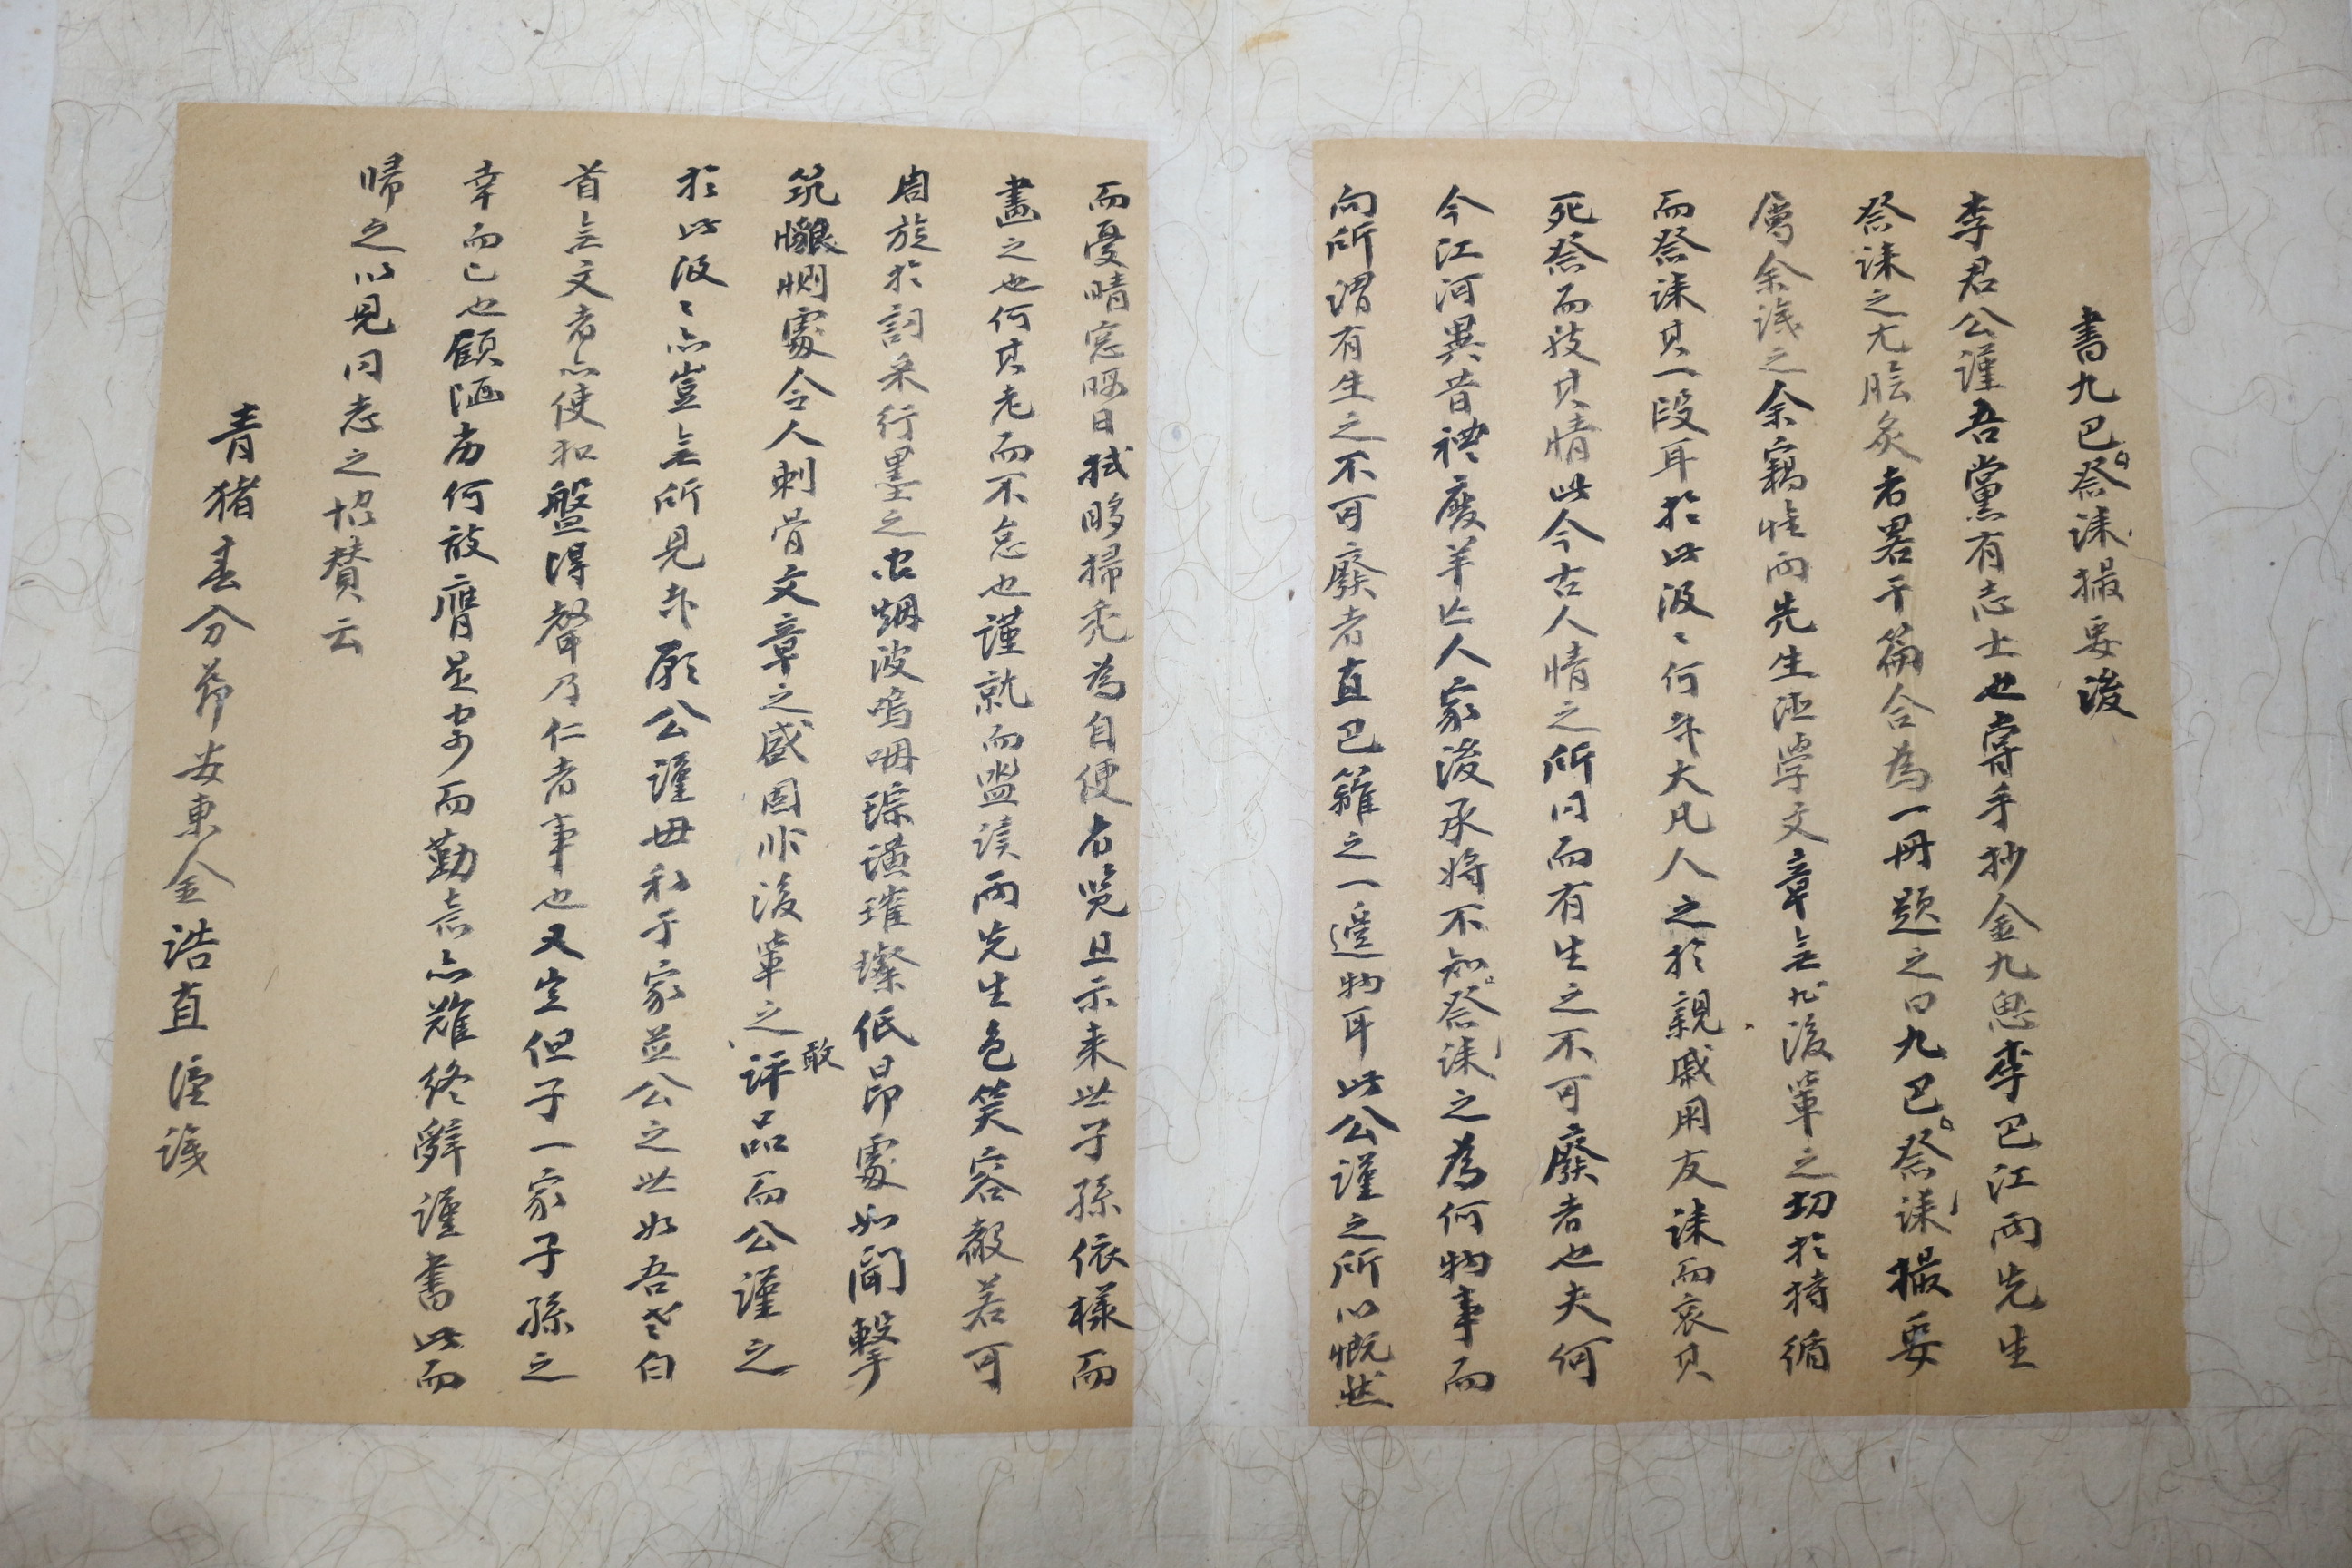 書九巴祭誄撮要後
李君公謹吾黨有志士也嘗手抄金九思李巴江兩先生
祭誄之尤膾炙者畧干篇合為一冊題之曰九巴祭誄撮要
属余識之余竊惟兩先生涇學文章無非後輩之切於持循
而祭誄其一段耳於此汲〻何哉大凡人之於親戚朋友誄而哀其
死祭而叙其情此今古人情之所同而有生之不可廢者也夫何
今江河異昔禮廢羊亡人家後承将不知祭誄之為何物事而
向所謂有生之不可廢者直巴籬之一邊物耳此公謹之所以慨然
而憂晴窓暇日拭眵掃禿為自便者覽且示来世子孫依樣而
畫之也何其老而不怠也謹就而盥讀兩先生色笑容皷若可
周旋於詞采行墨之中烟波嗚咽琮璜璀璨低昂處如聞擊
筑懇惻處令人刺骨文章之盛固非後輩之敢評品而公謹之
於此汲〻亦豈無所見哉願公謹毋私于家並公之世如吾老白
首無文者亦使和盤得聲乃仁者事也又豈但子一家子孫之
幸而已也顧涵齋何敢膺是寄而勤意亦難終辭謹書此而
歸之以見同志之協賛云
青猪春分節安東金浩直謹識